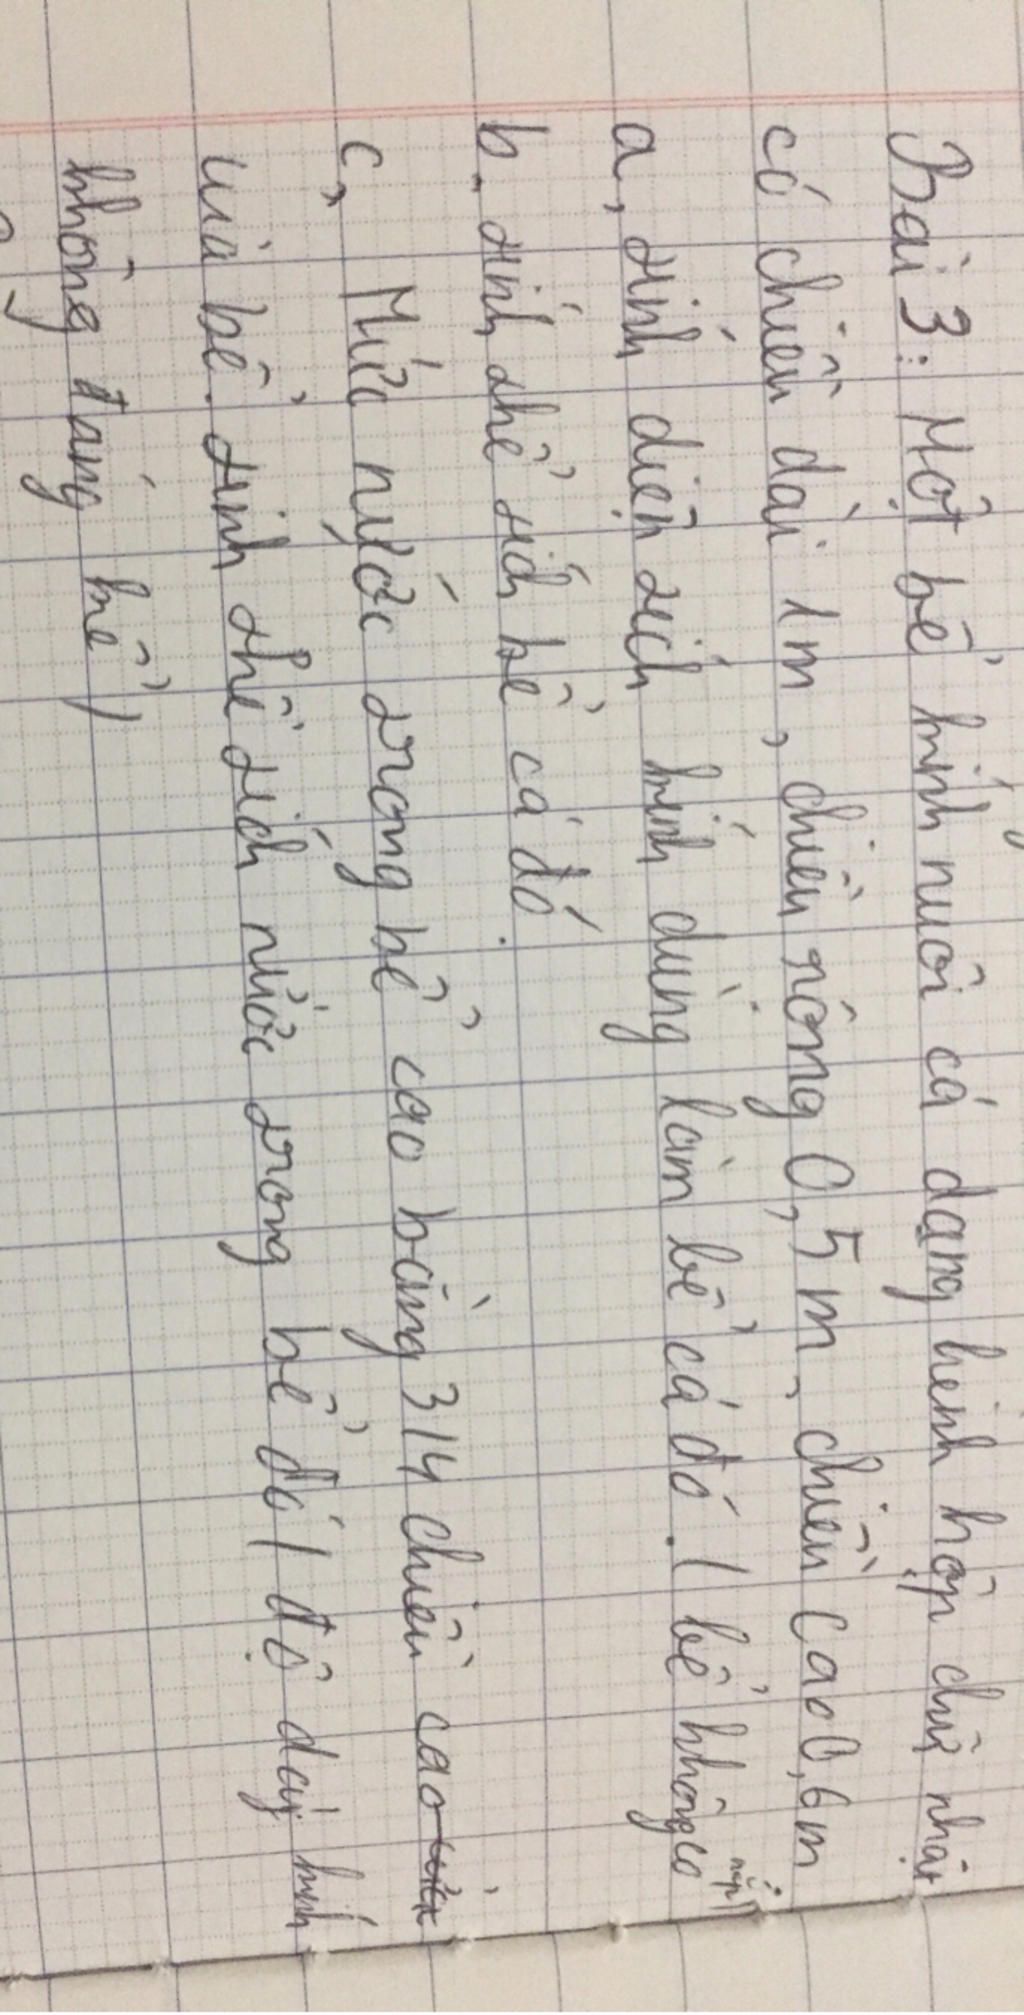 Bài 3: Một bể kính nuôi cá dạng hình hộp chữ nhật
có chiều dài 1m, chiều rộng 0,5m, chiều cao 0,6m
a, Tính diện tích kính dùng làm bể cá đó. (bể không có nắp)
b. Tính thể tích bể cá đó.
c, Mức nước trong bể cao bằng 3/4 chiều cao
của bể. Tính thể tích nước trong bể đó (độ dày kính
không đáng kể)